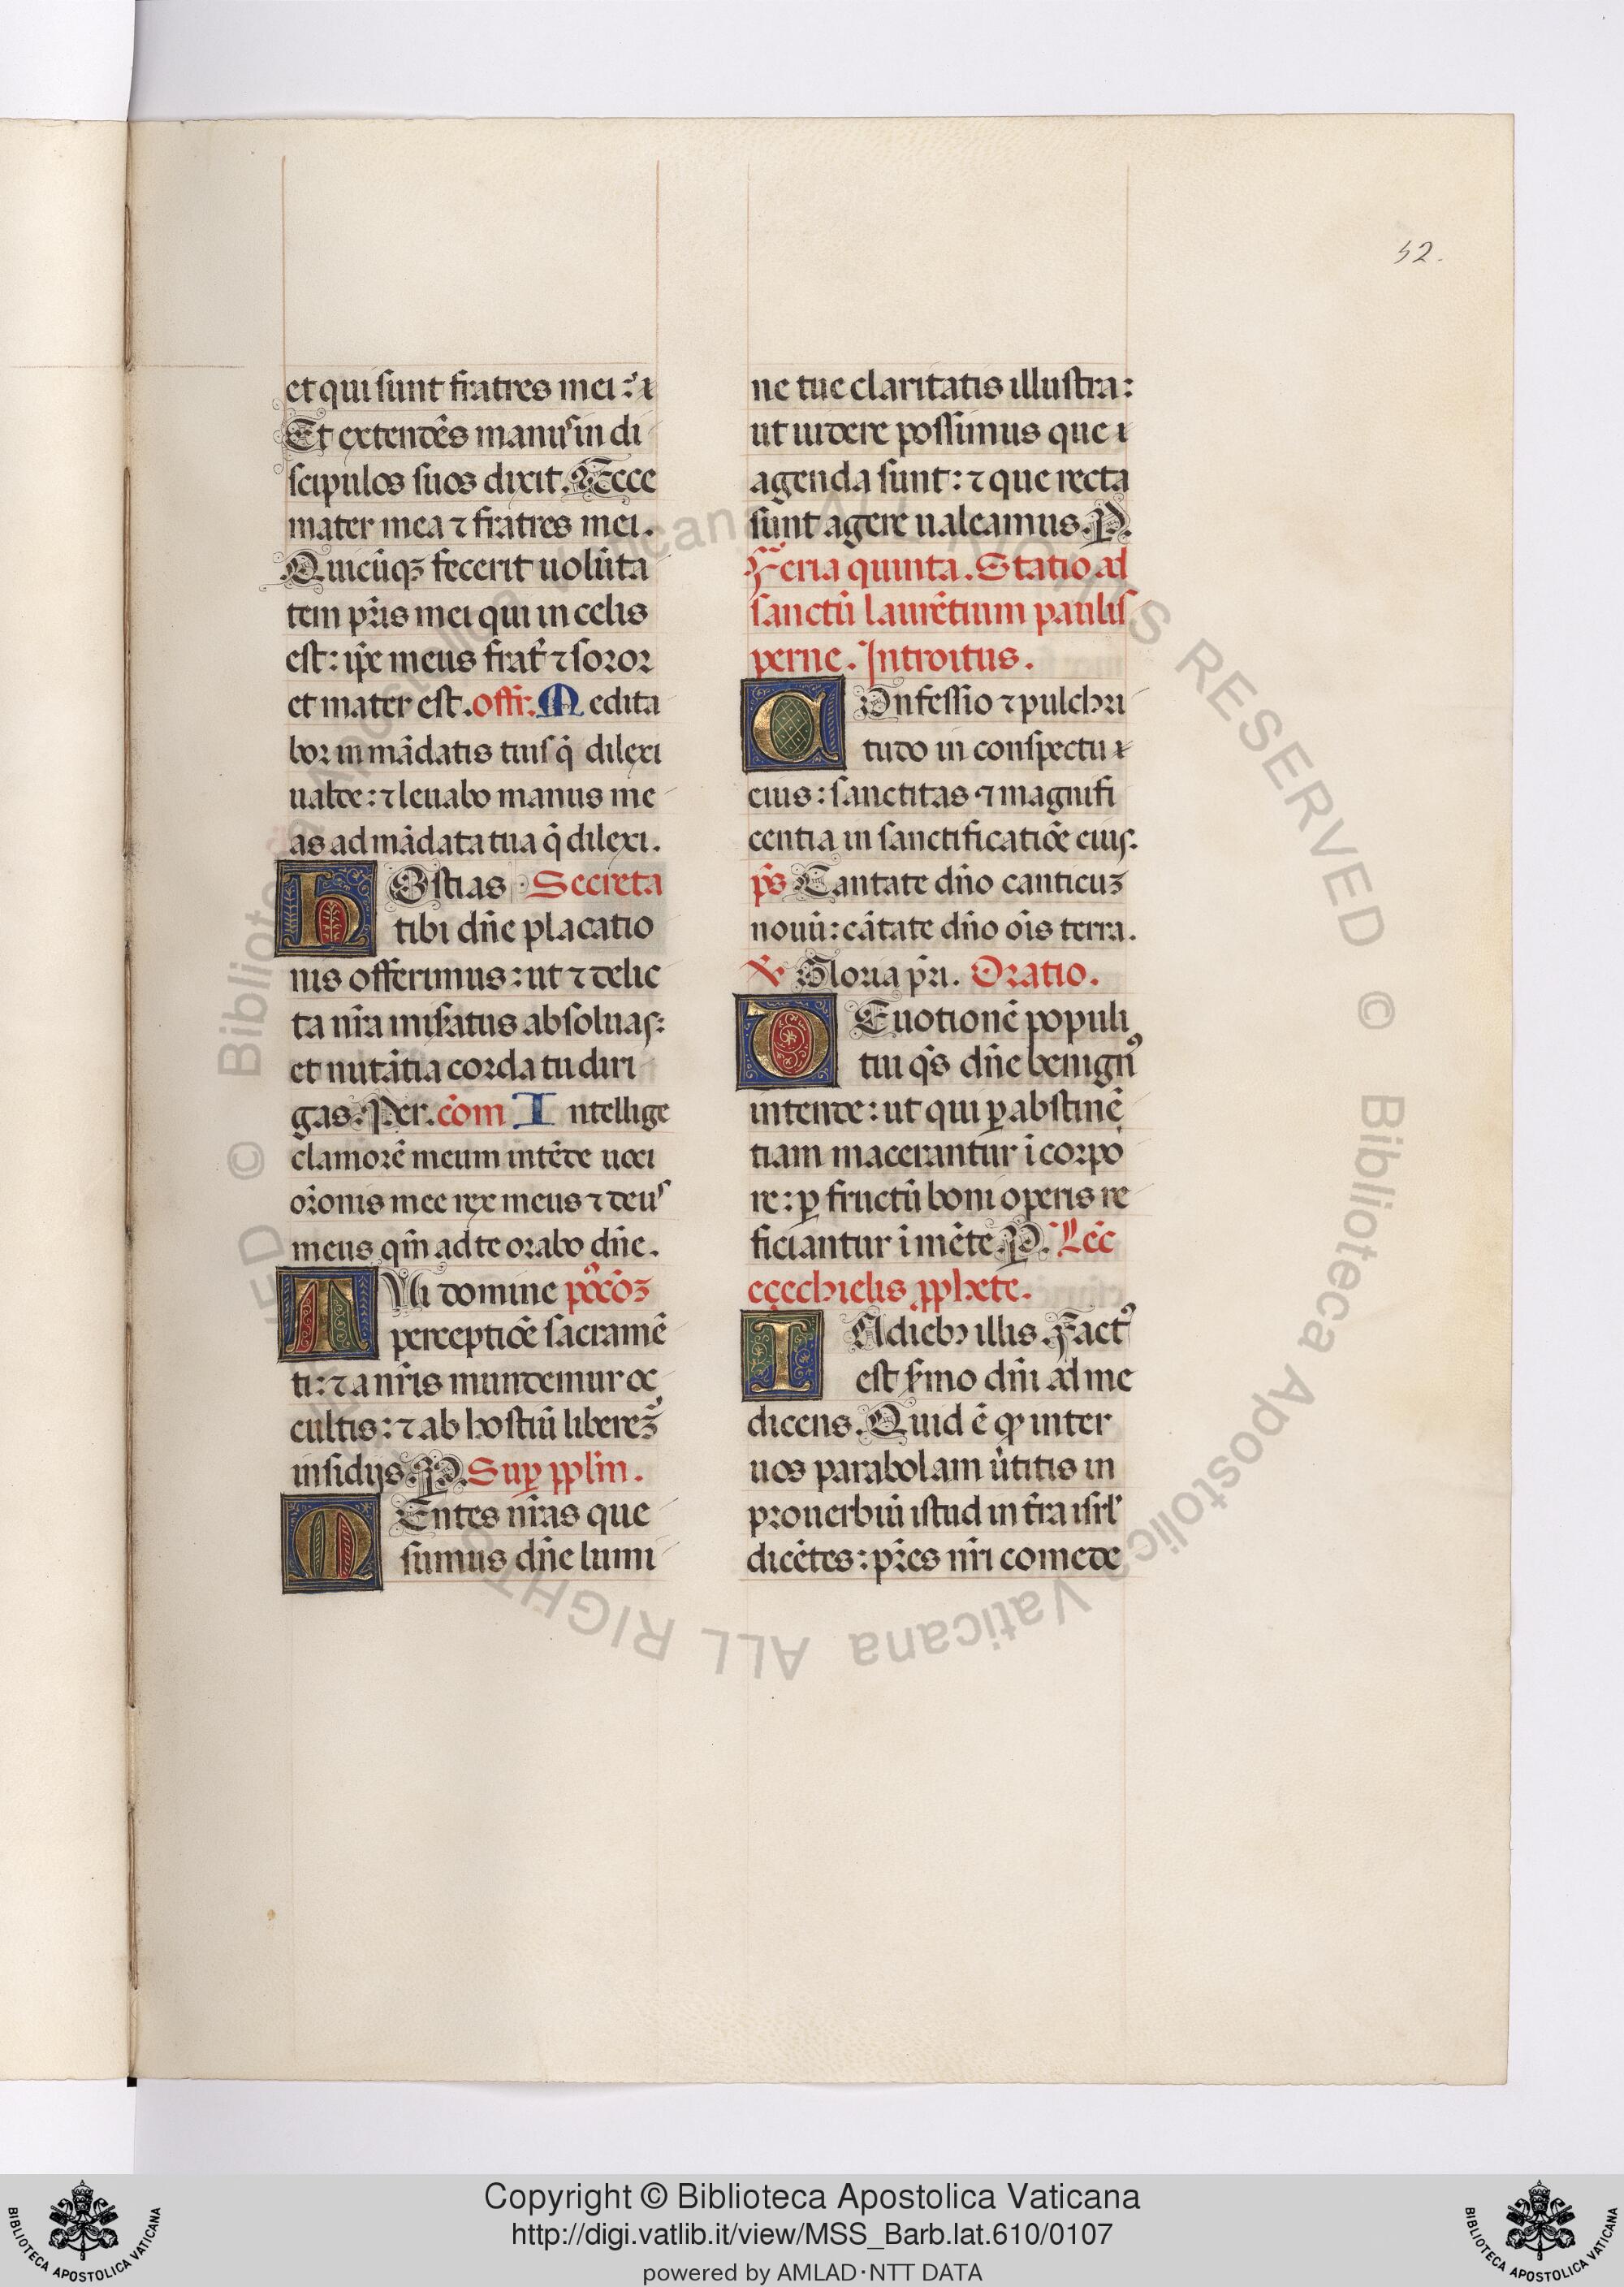 52.
et qui sunt fratres mei:
Et extendēs manus in di
scipulos suos dixit. Ecce
mater mea ⁊ fratres mei.
Quicūqꝫ fecerit uolūta
tem pr̄is mei qui in celis
est: ip̄e meus frat̄ ⁊ soror
et mater est. offr̄. Medita
bor in mādatis tuis q̄ dilexi
ualde: ⁊ leuabo manus me
as ad mādata tua q̄ dilexi.
Hostias Secreta
tibi dn̄e placatio
nis offerimus: ut ⁊ delic
ta nr̄a mis̄atus absoluas:
et nutātia corda tu diri
gas. Per. cōm Intellige
clamorē meum intēde uoci
or̄onis mee rex meus ⁊ deus
meus qm̄ ad te orabo dn̄e.
Ui domine
A
perceptiōe sacramē
ti: ⁊ a nr̄is mundemur oc
cultis: ⁊ ab hostiū liberem̄
insidijs. P. Suꝑ pplm̄.
Mentes nr̄as que
sumus dn̄e lumi
ne tue claritatis illustra:
ut uidere possimus que
agenda sunt: ⁊ que recta
sunt agere ualeamus. P.
Feria quinta. Statio ad
sanctū laurētium panis
perne. Introitus.
Confessio ⁊ pulchri
tudo in conspectu
eius: sanctitas ⁊ magnifi
centia in sanctificatiōe eius.
p̄s Cantate dn̄o canticuꝫ
nouū: cātate dn̄o ōis terra.
℣ Gloria pr̄i. Oratio.
Deuotionē populi
tui q̄s dn̄e benignꝰ
intende: ut qui ꝑ abstinē
tiam macerantur ī corpo
re: ꝑ fructū boni operis re
ficiantur ī mēte. P. Lēc
eçechielis ꝓphete.
IN dieb⁊ illis. Factꝰ
est s̄mo dn̄i ad me
dicens. Quid ē ꝙ inter
uos parabolam ūtitis in
prouerbiū istud in tr̄a isrl̄
dicētes: pr̄es nr̄i comede
Copyright © Biblioteca Apostolica Vaticana
http://digi.vatlib.it/view/MSS_Barb.lat.610/0107
powered by AMLAD·NTT DATA
BIBLIOTECA APOSTOLICA VATICANA
BIBLIOTECA APOSTOLICA VATICANA
© Biblioteca Apostolica Vaticana ALL RIGHTS RESERVED © Biblioteca Apostolica Vaticana ALL RIGHTS RESERVED